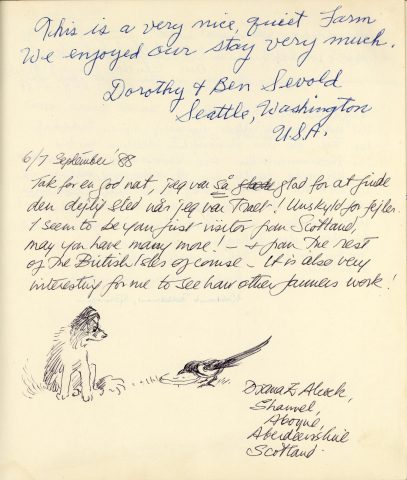 This is a very nice, quiet Farm
We enjoyed our stay very much.
Dorothy & Ben Sevold
Seattle, Washington
U.S.A.
6/7 September '88
Tak for en god nat, jeg var så glad for at finde
den dejlig sted når jeg var Træt! Unskyld for fejler.
I seem to be your first visitor from Scotland,
may you have many more! - & from The rest
of The British Isles of course - It is also very
interesting for me to see how other farmers work!
Diana
Aboyne,
Aberdeenshire
Scotland.